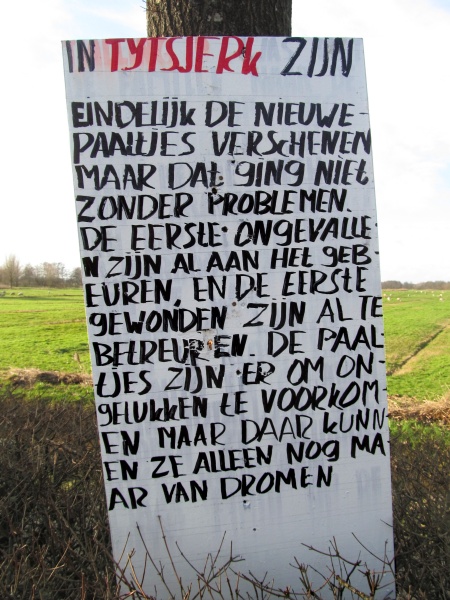 IN TYTSJERK ZIJN
EINDELIJK DE NIEUWE-
PAALTJES VERSCHENEN
MAAR DAT GING NIET
ZONDER PROBLEMEN.
DE EERSTE ONGEVALLE-
N ZIJN AL AAN HET GEB-
EUREN, EN DE EERSTE
GEWONDEN ZIJN AL TE
BETREUREN. DE PAAL-
TJES ZIJN ER OM ON-
GELUKKEN TE VOORKOM-
EN MAAR DAAR KUNN-
EN ZE ALLEEN NOG MA-
AR VAN DROMEN